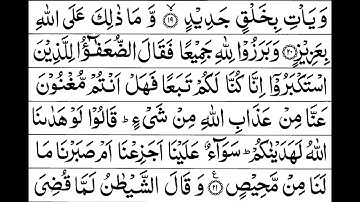 وَيَاْتِ بِخَلْقٍ جَدِيْدٍ ۙ﴿۱۹﴾ وَّ مَا ذٰلِكَ عَلَى اللّٰهِ
بِعَزِيْزٍ ﴿۲۰﴾ وَبَرَزُوْا لِلّٰهِ جَمِيْعًا فَقَالَ الضُّعَفٰٓؤُا لِلَّذِيْنَ
اسْتَكْبَرُوْٓا اِنَّا كُنَّا لَكُمْ تَبَعًا فَهَلْ اَنْتُمْ مُّغْنُوْنَ
عَنَّا مِنْ عَذَابِ اللّٰهِ مِنْ شَیْءٍ ؕ قَالُوْا لَوْ هَدٰىنَا
اللّٰهُ لَهَدَيْنٰكُمْ ؕ سَوَآءٌ عَلَيْنَآ اَجَزِعْنَآ اَمْ صَبَرْنَا مَا
لَنَا مِنْ مَّحِيْصٍ ﴿۲۱﴾ وَ قَالَ الشَّيْطٰنُ لَمَّا قُضِیَ